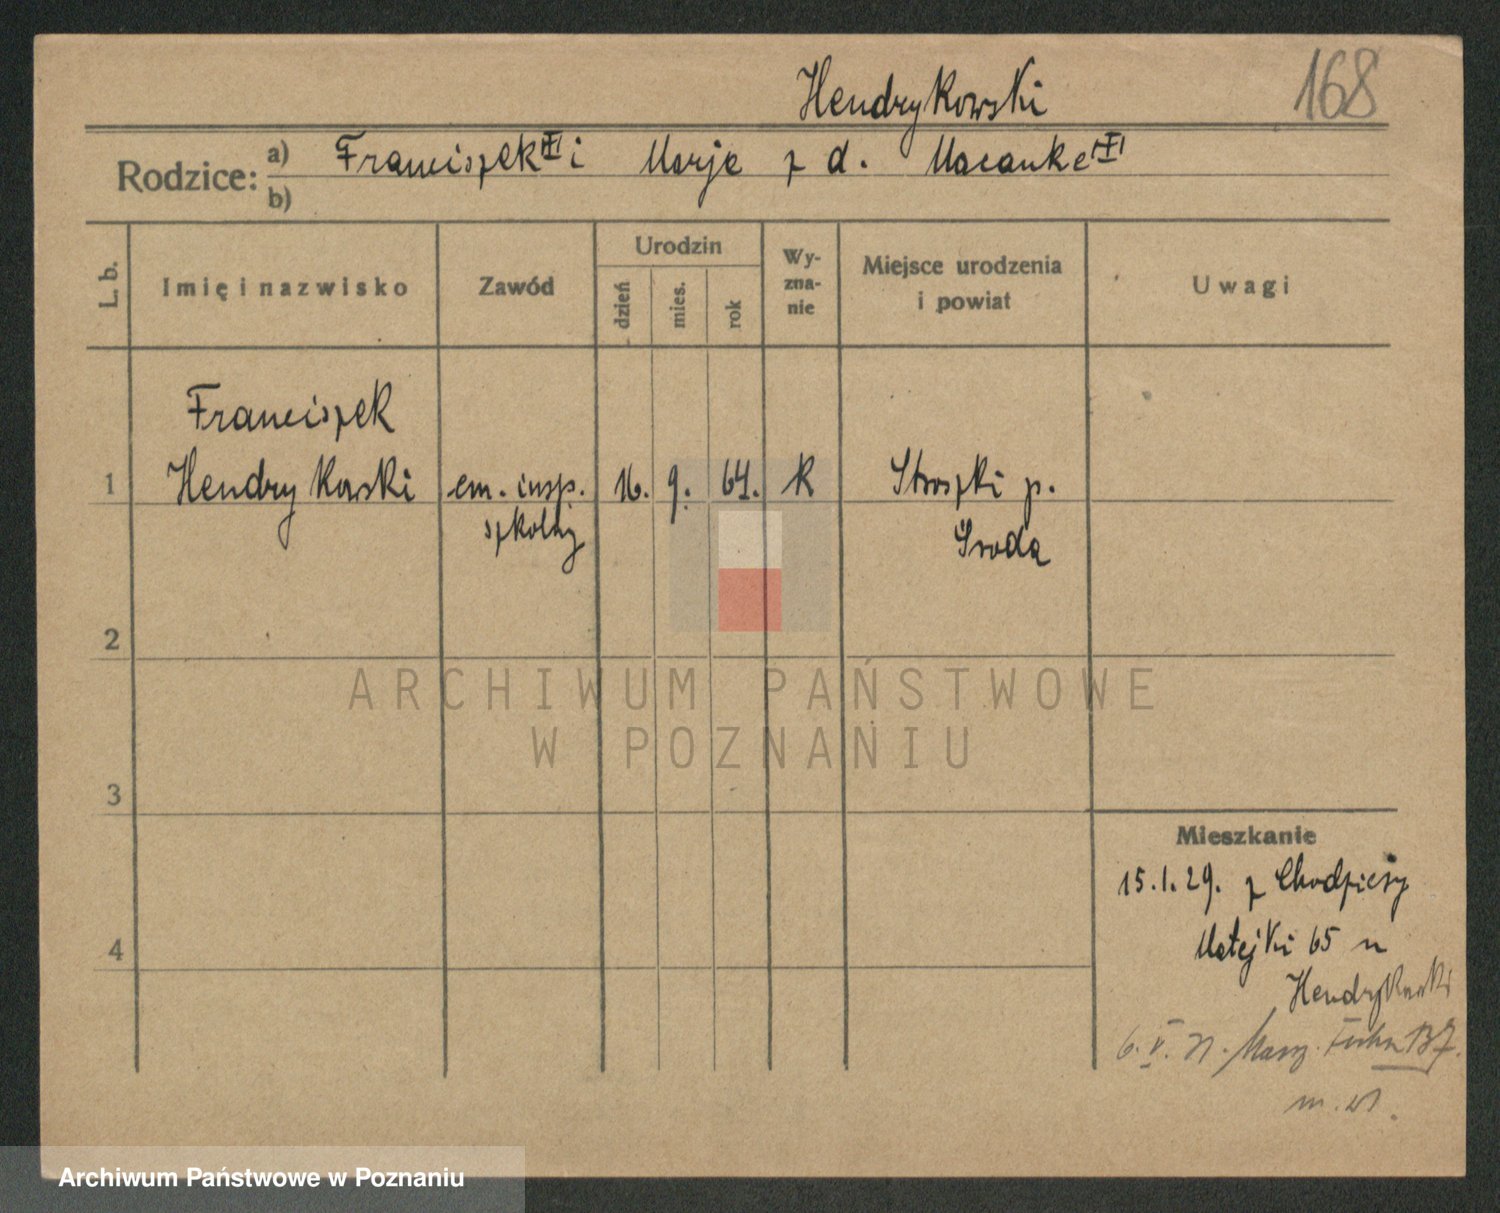 Hendrykowski
168
Rodzice: a) Franciszek i Marje z d. Macanke
b)
L. b. Imię i nazwisko Zawód Urodzin dzień mies. rok Wy-zna-nie Miejsce urodzenia i powiat Uwagi
Franciszek
1 Hendrykowski em. insp. 16. 9. 64. k Stroszki p.
szkolny Środa
2
ARCHIWUM PAŃSTWOWE
W POZNANIU
3
Mieszkanie
15.1.29. z Chodzieży
4 Matejki 65 u
Hendrykowski
6. V. 31. Marsz. Focha 137.
Archiwum Państwowe w Poznaniu